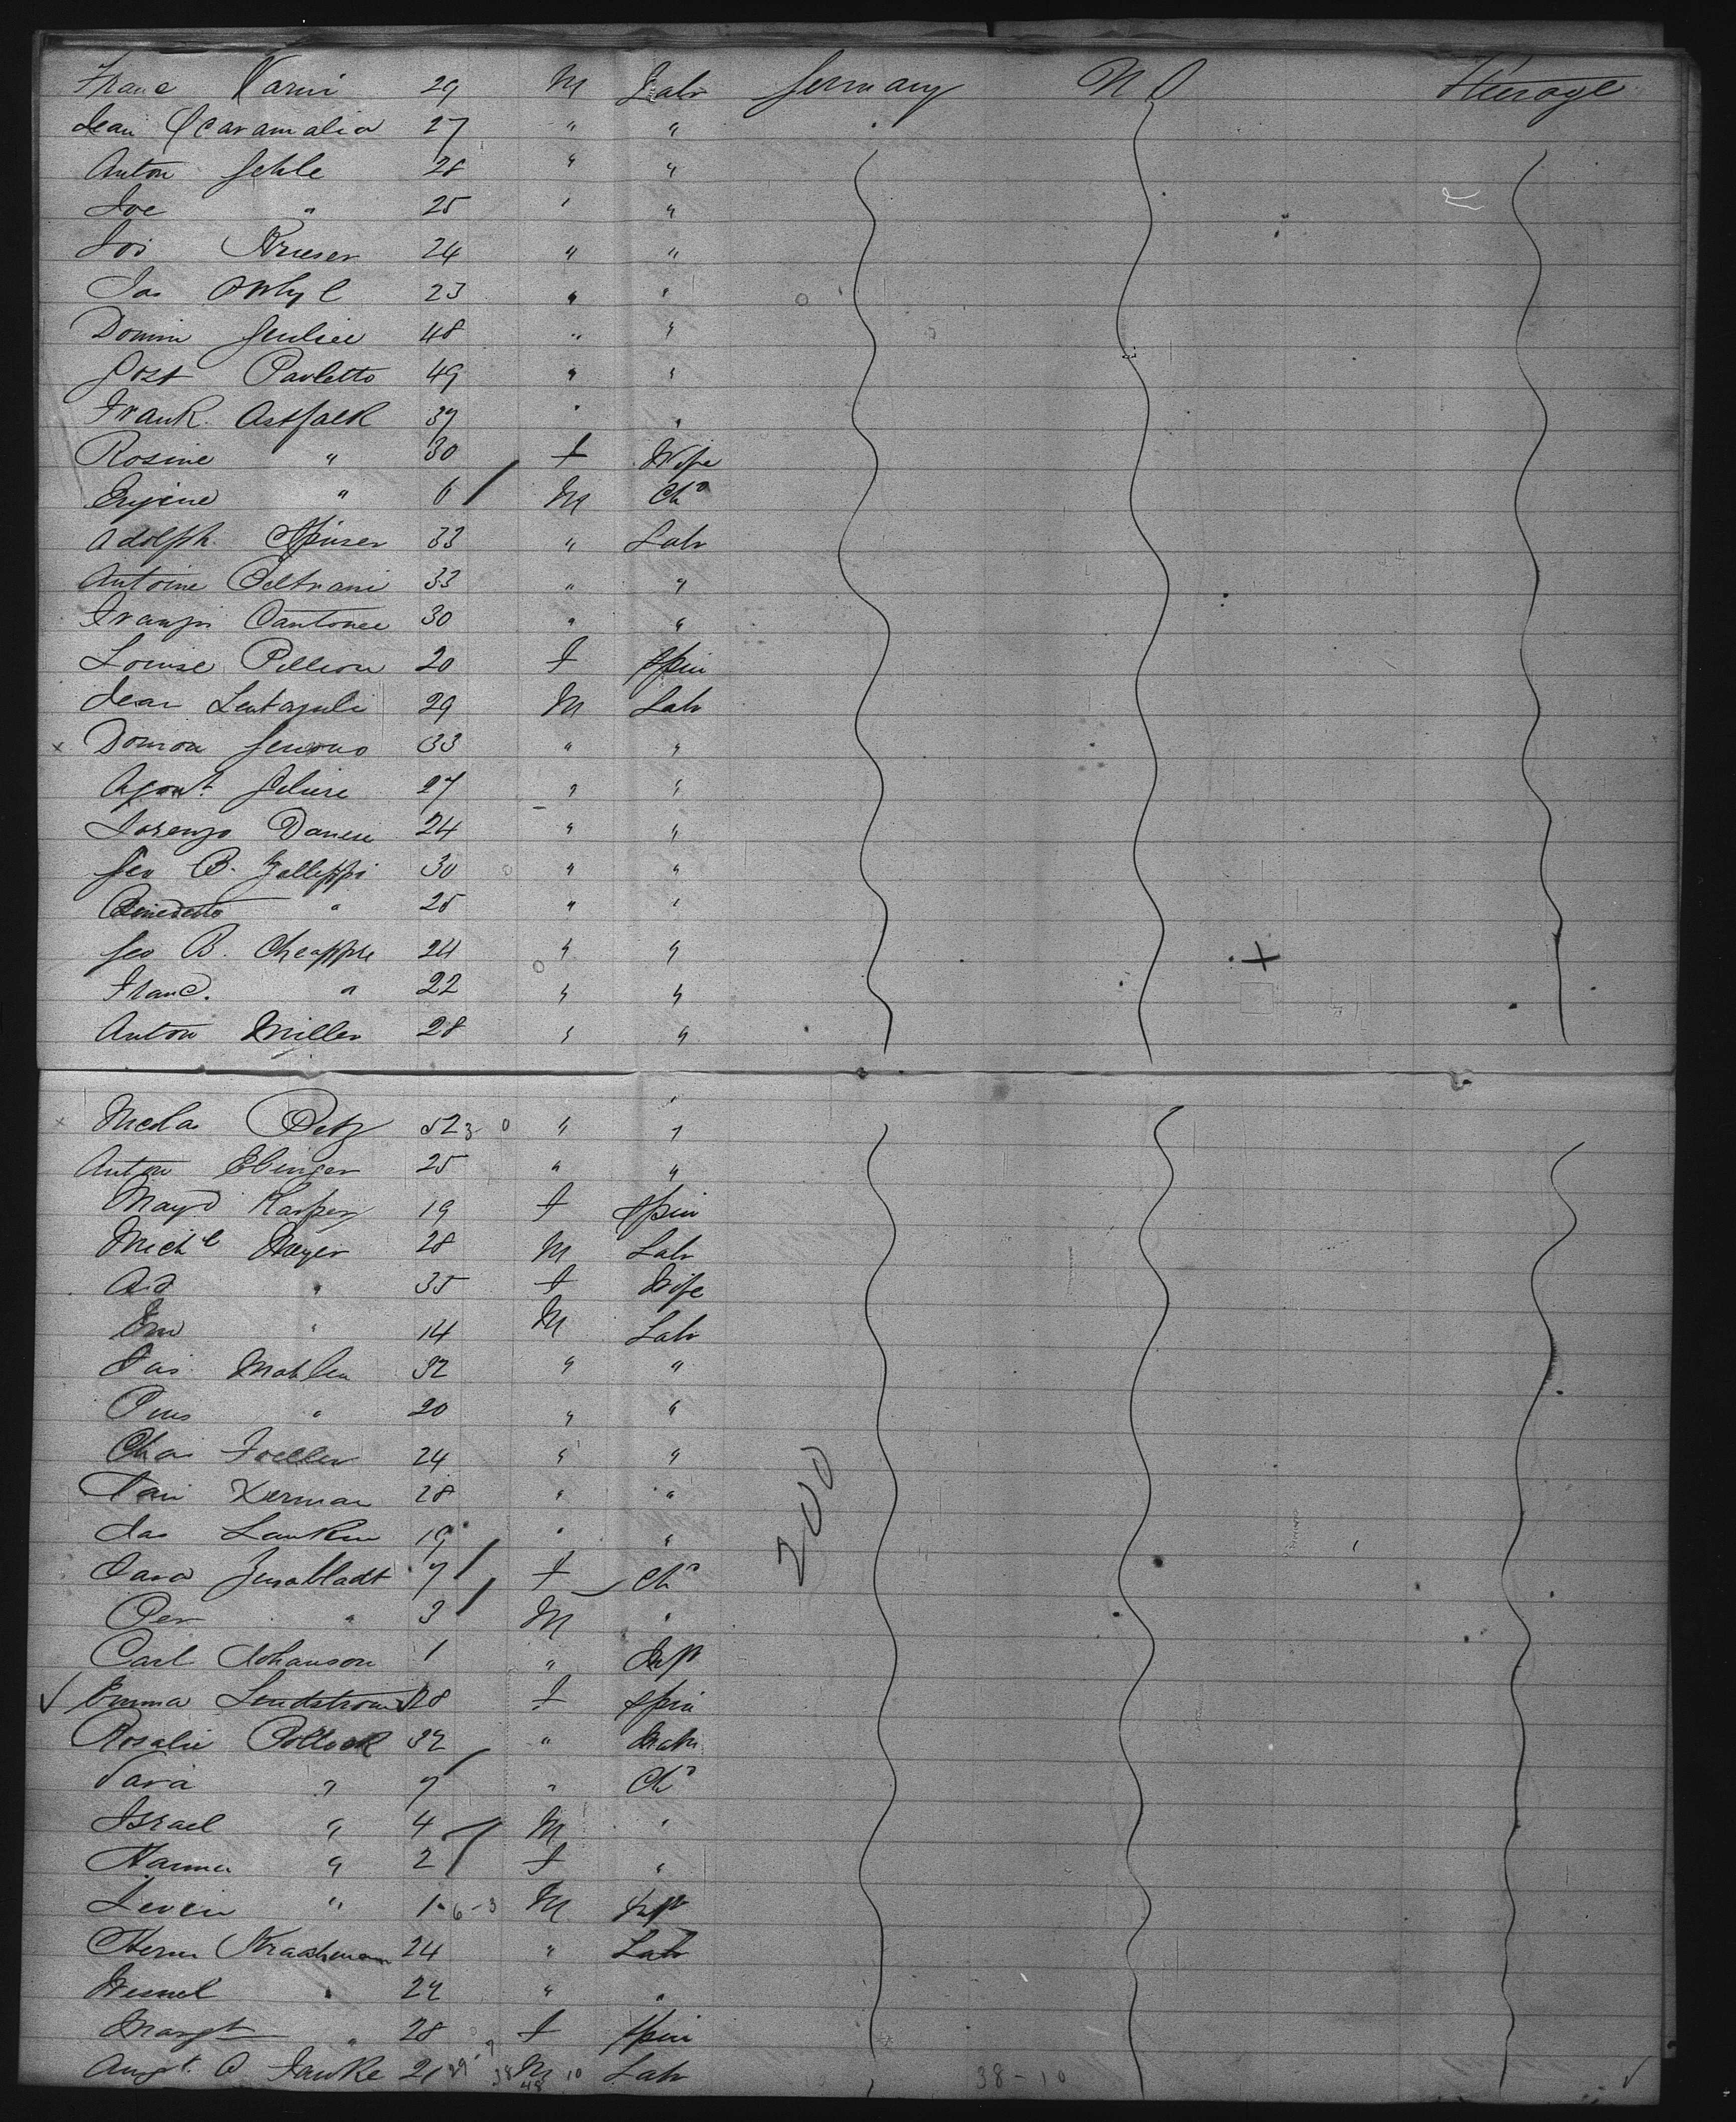 Franc Varini 29 M Labr Germany U S Steerage
Jean Scaramalia 27 " "
Anton Gehle 28 " "
Joe " 25 " "
Jos Krieser 24 " "
Jas 23 " "
Domin 48 " "
Post Pauletto 49 " "
Frank Astfalk 37 " "
Rosine " 30 f Wife
Eugene " 6 M Chd
Adolph Spinser 33 " Labr
Antoine Beltrami 33 " "
Franzis Cantonee 30 " "
Louise Pillion 20 f Spin
Jean 29 M Labr
x Domon 33 " "
Agost Felice 27 " "
Lorenzo Danesi 24 " "
Geo B. Galleppi 30 " "
Benedetto " 25 " "
Geo B. Cheappe 24 " "
Franc. " 22 " "
Anton Miller 28 " "
x Nicolas Betz 52 " "
Anton Ebinger 25 " "
Magd Kasper 19 f Spin
Michl Meyer 28 M Labr
Ad " 35 f Wife
Em " 14 M Labr
Mahlen 32 " "
Pius " 20 " "
Chas Foeller 24 " "
Herman 28 " "
Jas 19 " "
200
Sara 7 f Chd
Per " 3 M "
Carl Johanson 1 " Inft
Emma Lindstrom 28 f Spin
Rosalie Pollock 32 " Matr
Sara " 7 " Chd
Israel " 4 M "
Hanna " 2 f "
Levin " 1 6-3 M Inft
Herm 24 " Labr
Wessel " 24 " "
Margt " 28 f Spin
Augt. A Fawke 21 M Labr 38-10